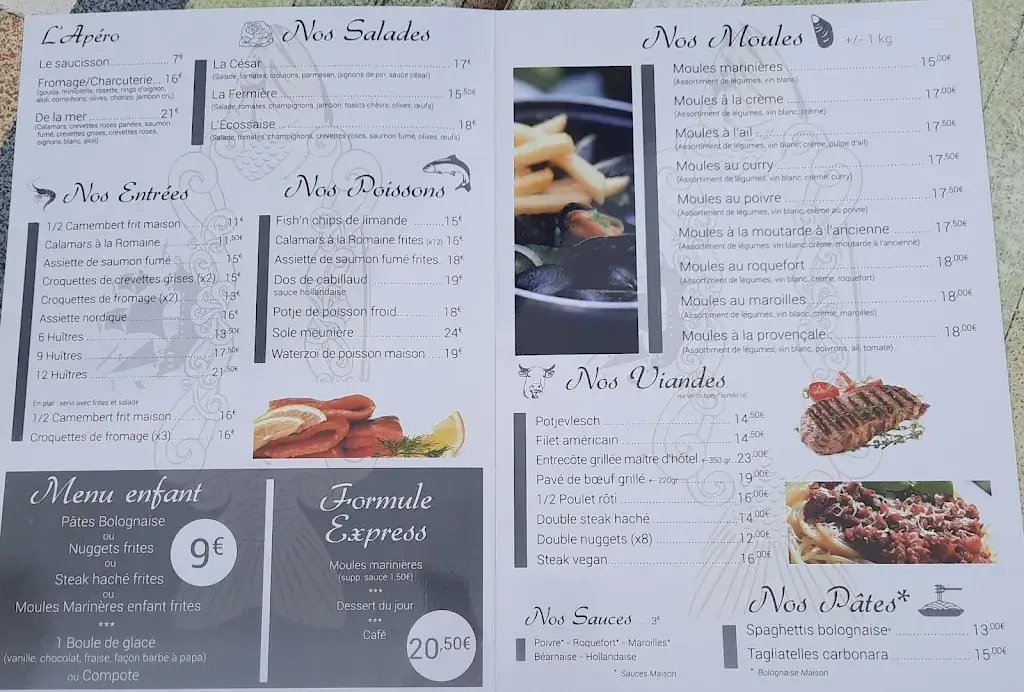 L'Apéro
Le saucisson 7€
Fromage/Charcuterie... 16€
(gouda, mimolette, rosette, rings d'oignon,
aïoli, cornichons, olives, chorizo, jambon cru)
De la mer 21€
(Calamars, crevettes roses panées, saumon
fumé, crevettes grises, crevettes roses,
oignons blanc, aïoli)
Nos Salades
La César 17€
(Salade, tomates, croûtons, parmesan, pignons de pin, sauce césar)
La Fermière 15,50€
(Salade, tomates, champignons, jambon, toasts chèvre, olives, œufs)
L'Écossaise 18€
(Salade, tomates, champignons, crevettes roses, saumon fumé, olives, œufs)
Nos Entrées
1/2 Camembert frit maison 11€
Calamars à la Romaine 11,50€
Assiette de saumon fumé 15€
Croquettes de crevettes grises (x2) 15€
Croquettes de fromage (x2) 13€
Assiette nordique 16€
6 Huîtres 13,50€
9 Huîtres 17,50€
12 Huîtres 21,50€
En plat : servi avec frites et salade
1/2 Camembert frit maison 16€
Croquettes de fromage (x3) 16€
Nos Poissons
Fish'n chips de limande 15€
Calamars à la Romaine frites (x12) 16€
Assiette de saumon fumé frites.. 18€
Dos de cabillaud 19€
sauce hollandaise
Potje de poisson froid 18€
Sole meunière 24€
Waterzoï de poisson maison 19€
Menu enfant
Pâtes Bolognaise
ou
Nuggets frites
ou
Steak haché frites
ou
Moules Marinères enfant frites
***
1 Boule de glace
(vanille, chocolat, fraise, façon barbe à papa)
ou Compote
9€
Formule
Express
Moules marinières
(supp. sauce 1,50€)
***
Dessert du jour
***
Café
20,50€
Nos Moules +/- 1 kg
Moules marinières 15,00€
(Assortiment de légumes, vin blanc)
Moules à la crème 17,00€
(Assortiment de légumes, vin blanc, crème)
Moules à l'ail 17,50€
(Assortiment de légumes, vin blanc, crème, pulpe d'ail)
Moules au curry 17,50€
(Assortiment de légumes, vin blanc, crème, curry)
Moules au poivre 17,50€
(Assortiment de légumes, vin blanc, crème au poivre)
Moules à la moutarde à l'ancienne 17,50€
(Assortiment de légumes, vin blanc, crème, moutarde à l'ancienne)
Moules au roquefort 18,00€
(Assortiment de légumes, vin blanc, crème, roquefort)
Moules au maroilles 18,00€
(Assortiment de légumes, vin blanc, crème, maroilles)
Moules à la provençale 18,00€
(Assortiment de légumes, vin blanc, poivrons, ail, tomate)
Nos Viandes
viande de bœuf
Potjevlesch 14,50€
Filet américain 14,50€
Entrecôte grillée maître d'hôtel +-350 gr.. 23,00€
Pavé de bœuf grillé +- 220gr 19,00€
1/2 Poulet rôti 16,00€
Double steak haché 14,00€
Double nuggets (x8) 12,00€
Steak vegan 16,00€
Nos Sauces ... 3€
Poivre* - Roquefort* - Maroilles*
Béarnaise - Hollandaise
* Sauces Maison
Nos Pâtes*
Spaghettis bolognaise* 13,00€
Tagliatelles carbonara 15,00€
* Bolognaise Maison